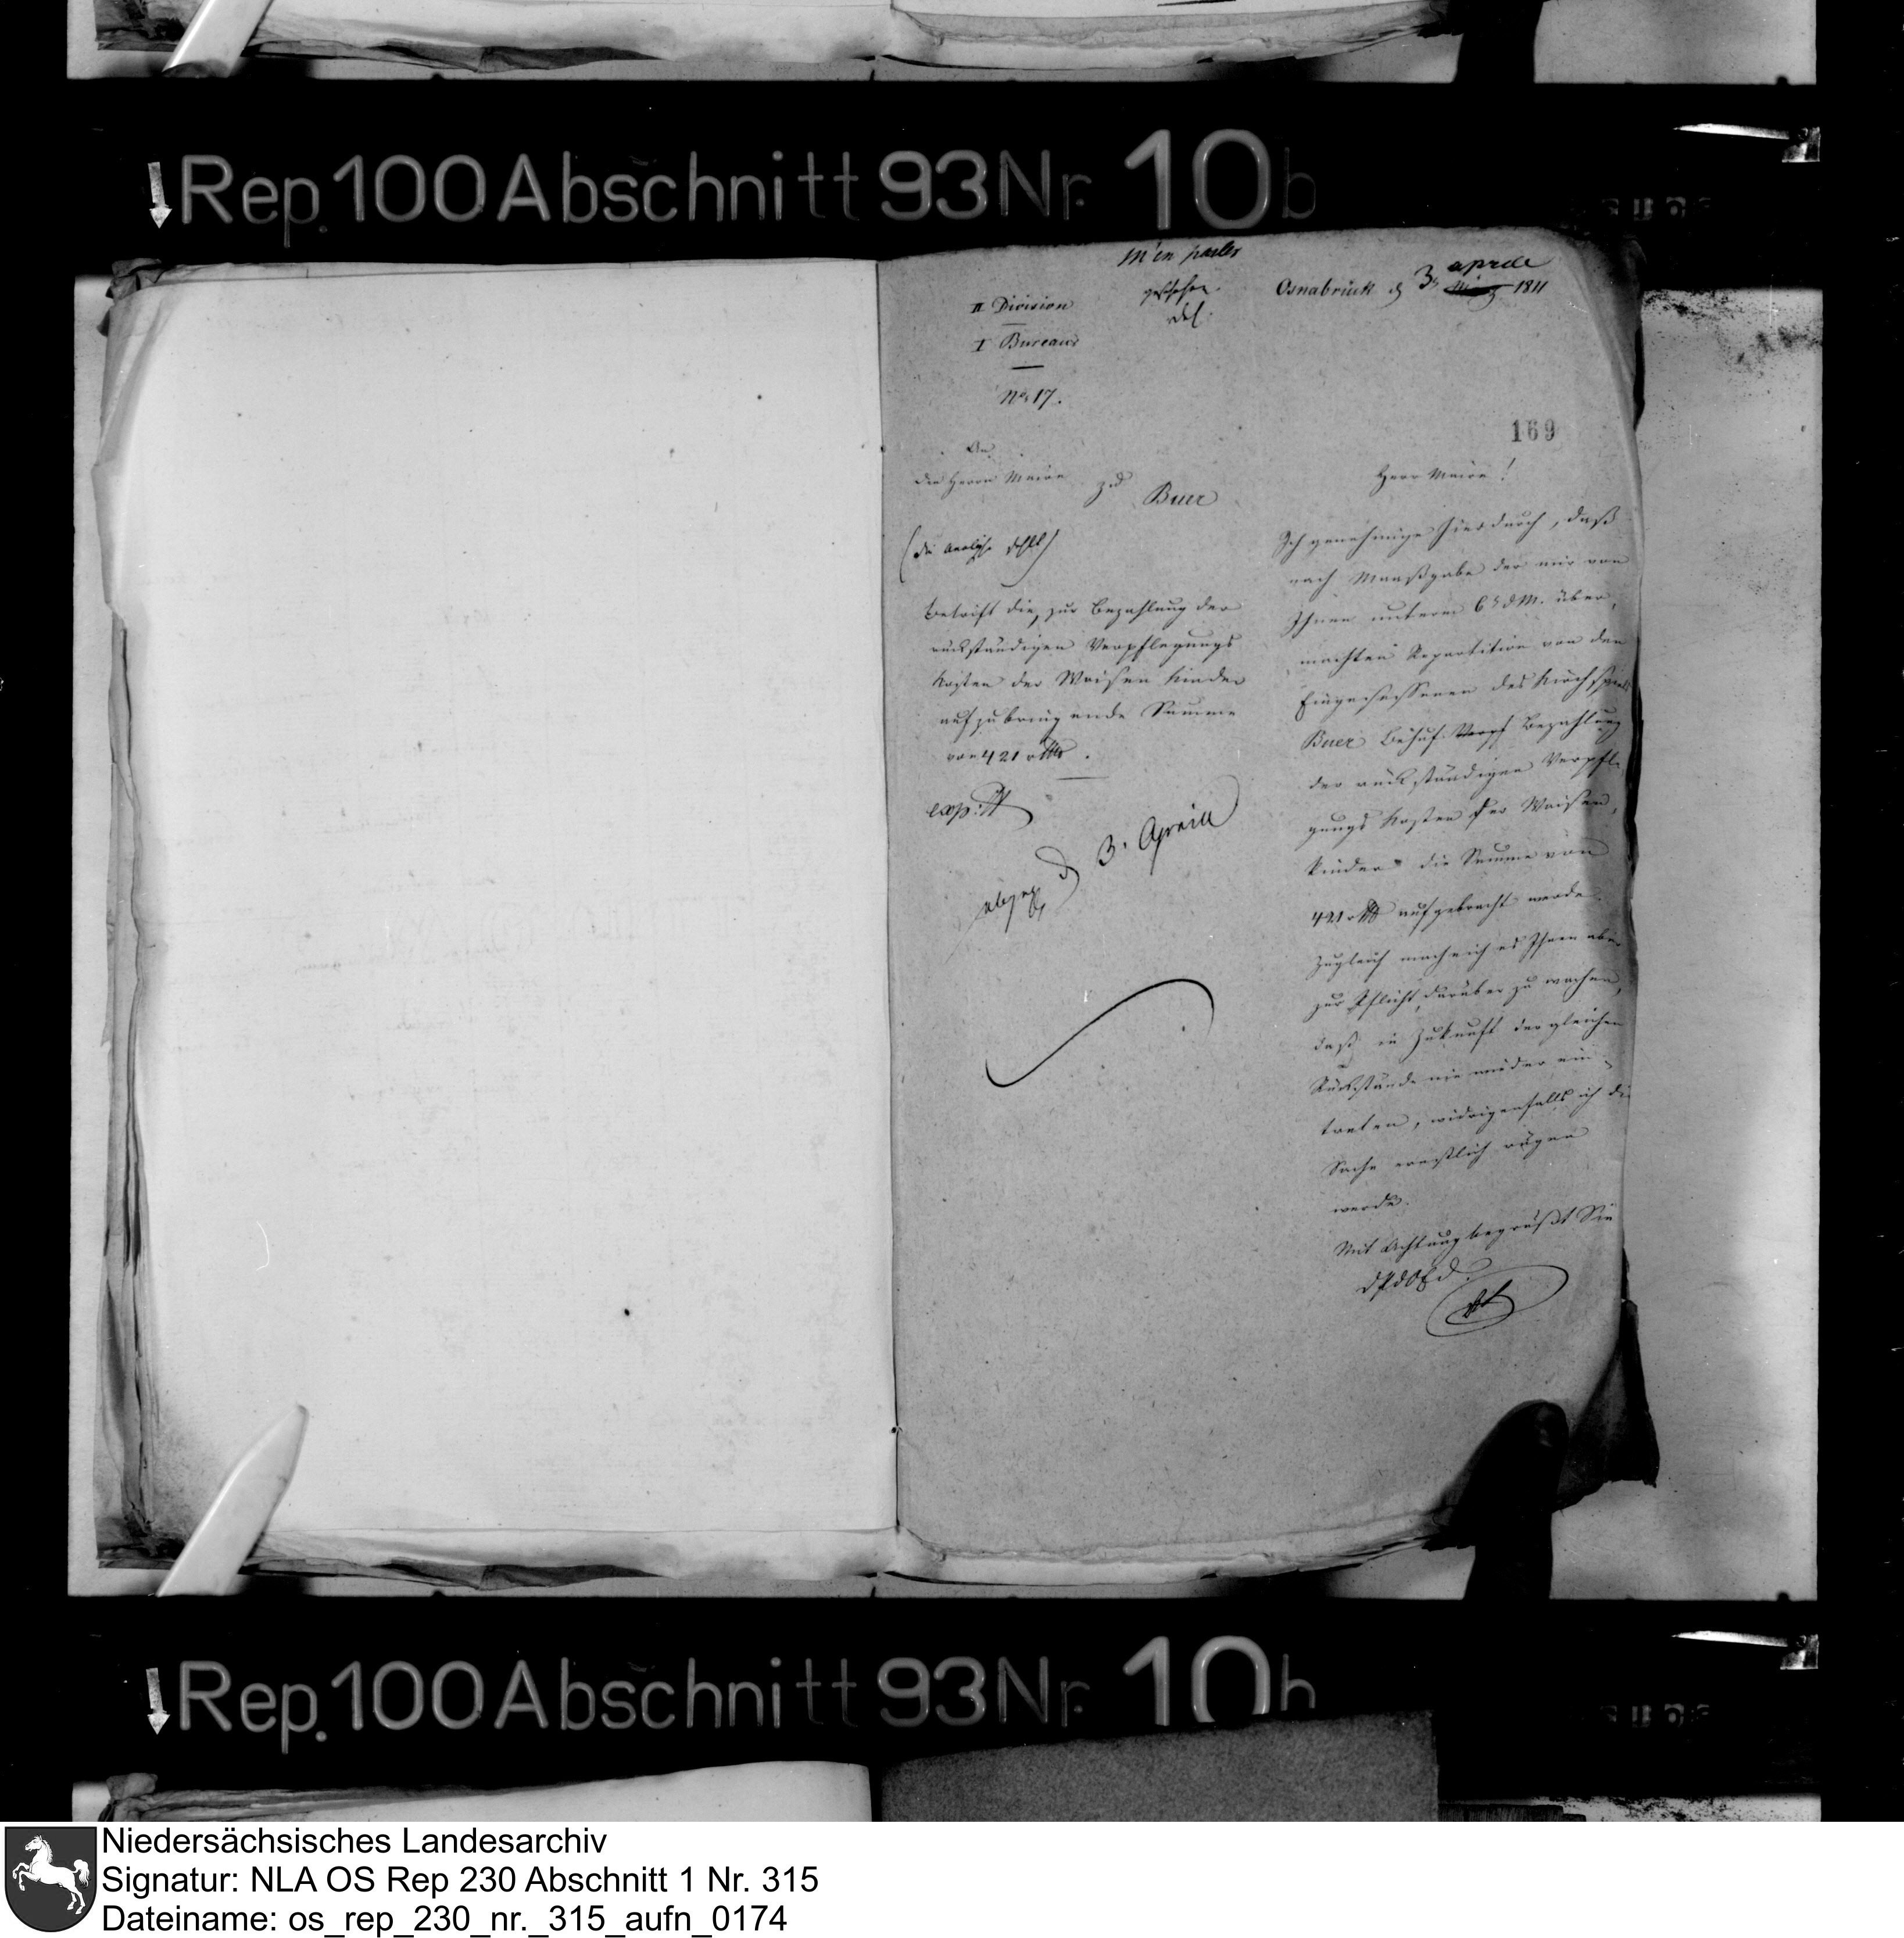 Rep. 100 Abschnitt 93 Nr. 10b
m'en parler
geschehen.
Osnabrück d 3 aprill März 1811
II Division
I Bureau
No. 17.
169
An
den Herrn Maire zu Buer
betrift die, zur Bezahlung der
rückständigen Verpflegungs
Kosten der Waisen Kinder
aufzubringende Summe
von 421 rthlr.
exp.
abgeg. d 3. Aprill
Herr Maire!
Ich genehmige hierdurch, daß
nach Maaßgabe der mir von
Ihnen unterm 6t d M. über,
machten Repartition von den
Eingesessenen des Kirchspiels
Buer Behuf Verpf Bezahlung
der rückständigen Verpfle
gungs Kosten der Waisen,
kinder die Summe von
421 rthlr aufgebracht werde.
Zugleich mache ich es Ihnen aber
zur Pflicht, darüber zu wachen,
daß in Zukunft dergleichen
Rückstände nie wieder ein
treten, widrigenfalls ich die
Sache ernstlich rügen
werde.
Mit Achtung begrüßt Sie
d P d O E d.
Rep. 100 Abschnitt 93 Nr. 10b
Niedersächsisches Landesarchiv
Signatur: NLA OS Rep 230 Abschnitt 1 Nr. 315
Dateiname: os_rep_230_nr._315_aufn_0174